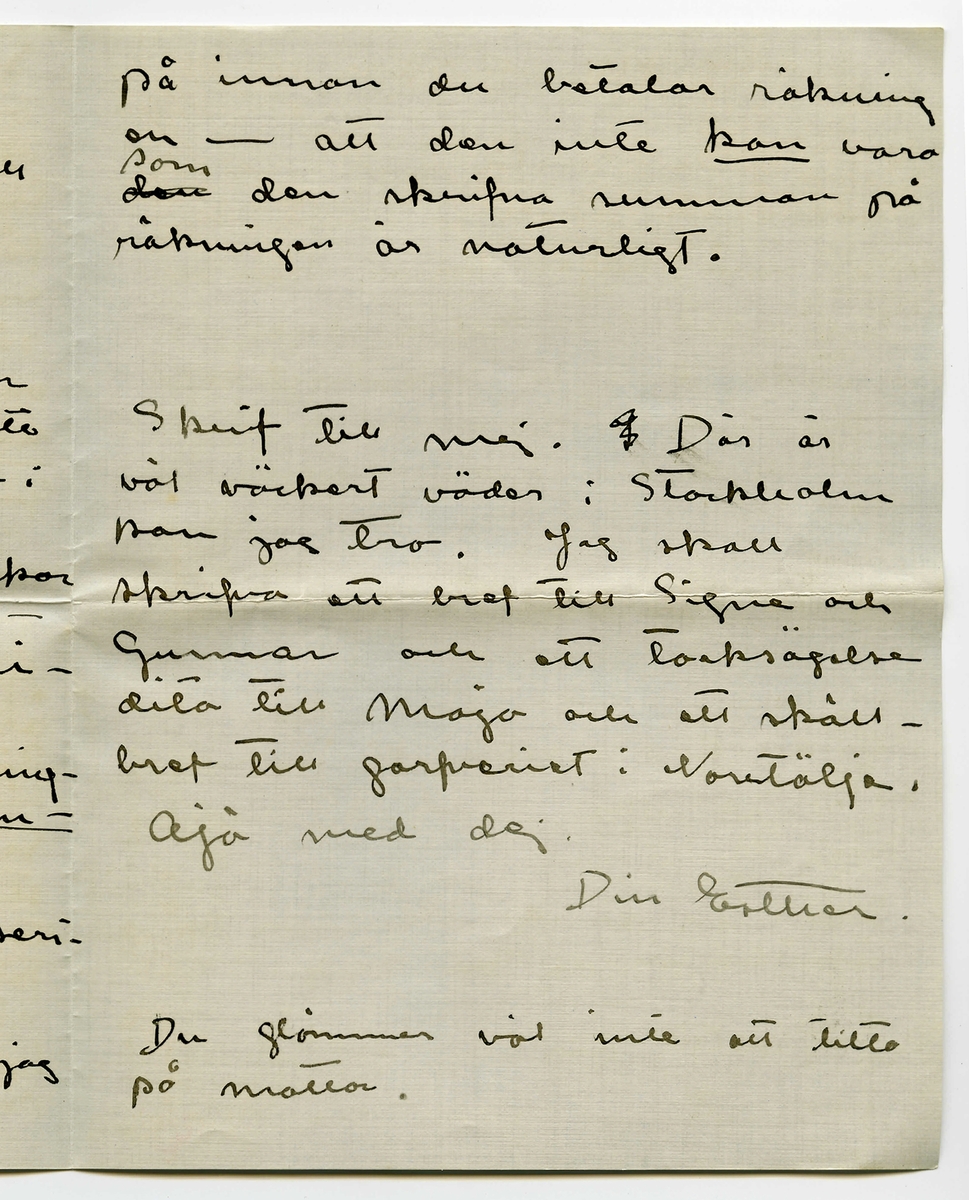 på innan du betalar räkning
en — att den inte kan vara
som
den den skrifna summan på
räkningen är naturligt.
Skrif till mej. Där är
väl väckert väder i Stockholm
kan jag tro. Jag skall
skrifva ett bref till Signe och
Gunnar och ett tacksägelse
dito till Maja och ett skäll-
bref till garfveriet i Norrtälje.
Ajö med dej.
Din Esther.
Du glömmer väl inte att titta
på mattor.
jag